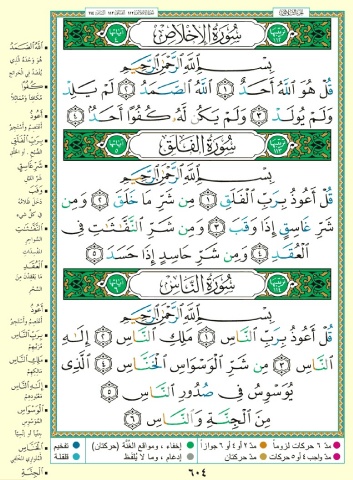 سُورَةُ الإِخْلَاصِ
بِسْمِ اللَّهِ الرَّحْمَٰنِ الرَّحِيمِ
قُلْ هُوَ اللَّهُ أَحَدٌ ١ اللَّهُ الصَّمَدُ ٢ لَمْ يَلِدْ
وَلَمْ يُولَدْ ٣ وَلَمْ يَكُن لَّهُ كُفُوًا أَحَدٌ ٤
سُورَةُ الفَلَقِ
بِسْمِ اللَّهِ الرَّحْمَٰنِ الرَّحِيمِ
قُلْ أَعُوذُ بِرَبِّ الْفَلَقِ ١ مِن شَرِّ مَا خَلَقَ ٢ وَمِن
شَرِّ غَاسِقٍ إِذَا وَقَبَ ٣ وَمِن شَرِّ النَّفَّاثَاتِ فِي
الْعُقَدِ ٤ وَمِن شَرِّ حَاسِدٍ إِذَا حَسَدَ ٥
سُورَةُ النَّاسِ
بِسْمِ اللَّهِ الرَّحْمَٰنِ الرَّحِيمِ
قُلْ أَعُوذُ بِرَبِّ النَّاسِ ١ مَلِكِ النَّاسِ ٢ إِلَٰهِ
النَّاسِ ٣ مِن شَرِّ الْوَسْوَاسِ الْخَنَّاسِ ٤ الَّذِي
يُوَسْوِسُ فِي صُدُورِ النَّاسِ ٥
مِنَ الْجِنَّةِ وَالنَّاسِ ٦
مدّ ٦ حركات لزوماً مدّ ٢ أو ٤ أو ٦ جوازاً إخفاء، ومواقع الغُنَّة (حركتان) تفخيم
مدّ واجب ٤ أو ٥ حركات مدّ حركتان إدغام، وما لا يُلفظ قلقلة
٦٠٤
اللَّهُ الصَّمَدُ
كُفُوًا
أَعُوذُ
بِرَبِّ الْفَلَقِ
شَرِّ غَاسِقٍ
وَقَبَ
النَّفَّاثَاتِ
الْعُقَدِ
أَعُوذُ
بِرَبِّ النَّاسِ
مَلِكِ النَّاسِ
إِلَٰهِ النَّاسِ
الْوَسْوَاسِ
الْخَنَّاسِ
الْجِنَّةِ